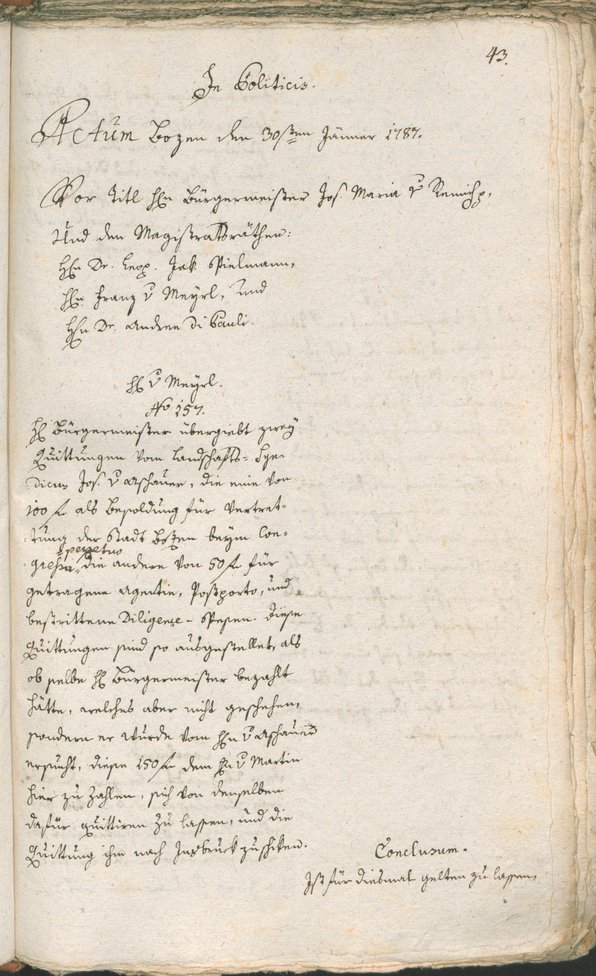 43.
In Politicis.
Actum Bozen den 30sten Jänner 1787.
Vor Titl Hrn Bürgermeister Jos. Maria v Remich,
Und den Magistratsräthen:
Hrn Dr. Leop. Jak. Spielmann,
Hrn Franz v Meyrl, und
Hrn Dr. Andree Di Pauli.
Hr v Meyrl.
No 157.
Hr Bürgermeister übergiebt zwey
Quittungen vom Landschafts-Syn-
dicus Jos. v Aschauer, die eine von
100 f als Besoldung für Vertret-
tung der Stadt Bozen beym Con-
greß perpetuo, die andere von 50 f für
getragene Agentie, Postporto, und
bestrittene Diligenze-Spesen. Diese
Quittungen sind so ausgestellet, als
ob selbe Hr Bürgermeister bezahlt
hätte, welches aber nicht geschehen,
sondern er wurde vom Hrn v Aschauer
ersucht, diese 150 f dem Hrn v Martin
hier zu zahlen, sich von denselben
dafür quittiren zu lassen, und die
Quittung ihm nach Insbruck zuschiken.
Conclusum.
Ist für diesmal gelten zu lassen,